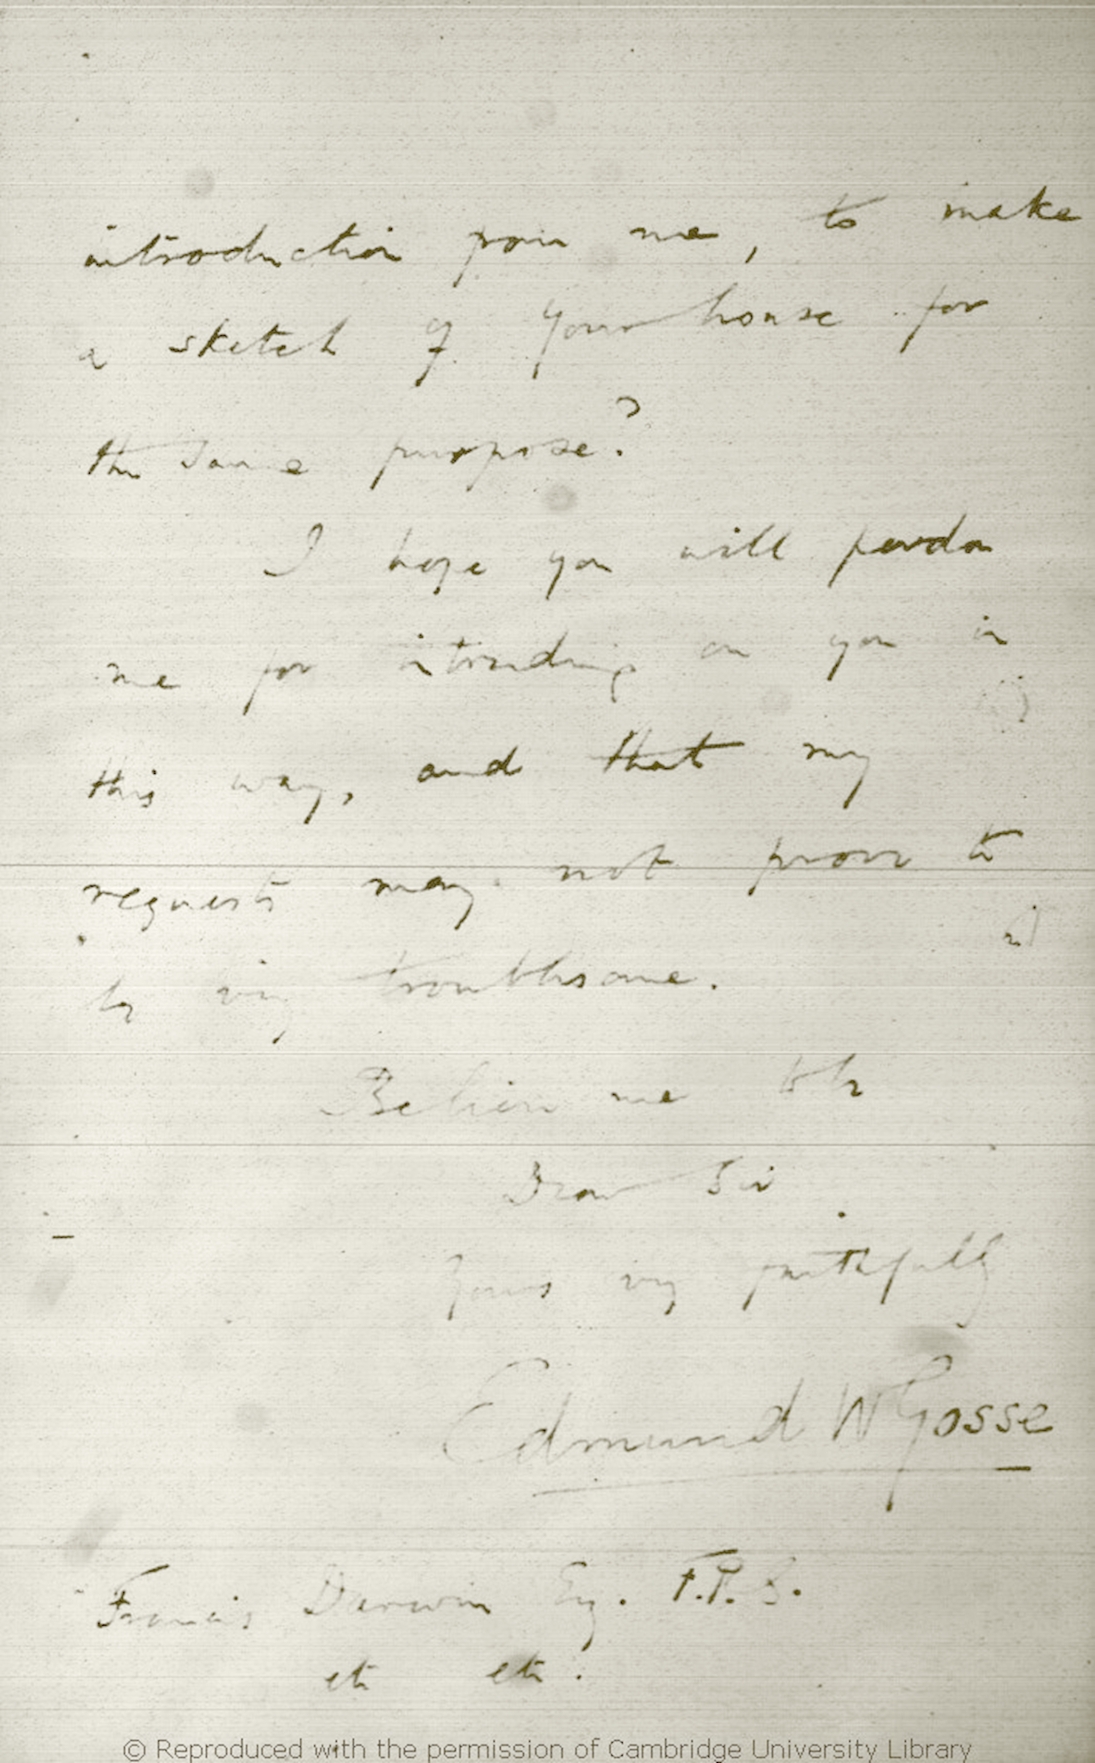 introduction from me, to make
a sketch of your house for
the same purpose?
I hope you will pardon
me for intruding on you in
this way, and that my
requests may not prove to
be very troublesome.
Believe me to be
Dear Sir
Yours very faithfully
Edmund W Gosse
Francis Darwin Esq. F.R.S.
etc etc.
© Reproduced with the permission of Cambridge University Library